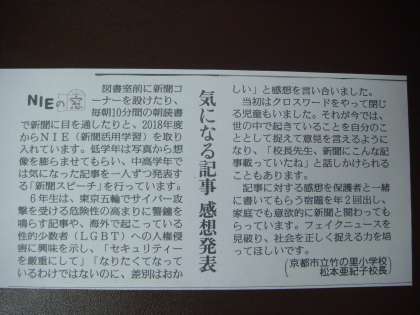 NIEの窓
気になる記事 感想発表
図書室前に新聞コ
ーナーを設けたり、
毎朝10分間の朝読書
で新聞に目を通したりと、2018年度
からNIE(新聞活用学習)を取り
入れています。低学年は写真から想
像を膨らませてもらい、中高学年で
は気になった記事を一人ずつ発表す
る「新聞スピーチ」を行っています。
6年生は、東京五輪でサイバー攻
撃を受ける危険性の高まりに警鐘を
鳴らす記事や、海外で起こっている
性的少数者(LGBT)への人権侵
害に興味を示し、「セキュリティー
を厳重にして」「なりたくてなって
いるわけではないのに、差別はおか
しい」と感想を言い合いました。
当初はクロスワードをやって閉じ
る児童もいました。それが今では、
世の中で起きていることを自分のこ
ととして捉えて意見を言えるように
なり、「校長先生、新聞にこんな記
事載っていたね」と話しかけられる
こともあります。
記事に対する感想を保護者と一緒
に書いてもらう宿題を年2回出し、
家庭でも意欲的に新聞と関わっても
らっています。フェイクニュースを
見破り、社会を正しく捉える力を培
ってほしいです。
(京都市立竹の里小学校
松本亜紀子校長)